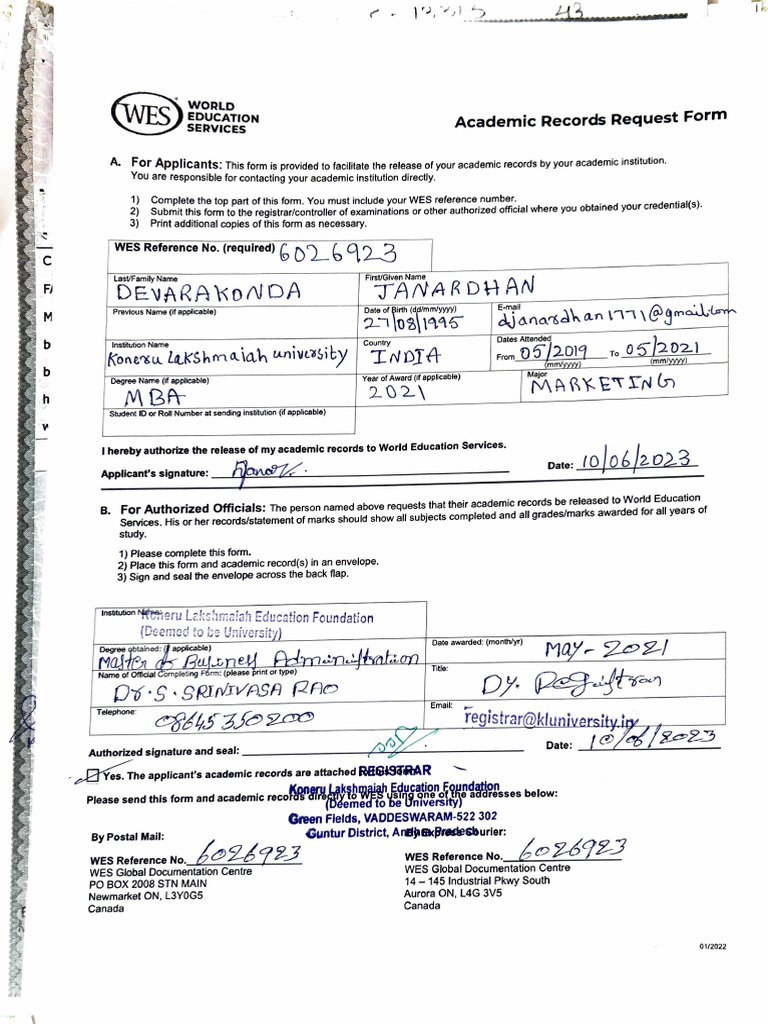 WES WORLD
EDUCATION
SERVICES
Academic Records Request Form
A. For Applicants: This form is provided to facilitate the release of your academic records by your academic institution.
You are responsible for contacting your academic institution directly.
1) Complete the top part of this form. You must include your WES reference number.
2) Submit this form to the registrar/controller of examinations or other authorized official where you obtained your credential(s).
3) Print additional copies of this form as necessary.
WES Reference No. (required) 6026923
Last/Family Name First/Given Name
DEVARAKONDA JANARDHAN
Previous Name (if applicable) Date of Birth (dd/mm/yyyy) E-mail
27/08/1995 djanardhan1771@gmail.com
Institution Name Country Dates Attended
Koneru Lakshmaiah university INDIA From 05/2019 To 05/2021
(mm/yyyy) (mm/yyyy)
Degree Name (if applicable) Year of Award (if applicable) Major
MBA 2021 MARKETING
Student ID or Roll Number at sending institution (if applicable)
I hereby authorize the release of my academic records to World Education Services.
Applicant's signature: Date: 10/06/2023
B. For Authorized Officials: The person named above requests that their academic records be released to World Education
Services. His or her records/statement of marks should show all subjects completed and all grades/marks awarded for all years of
study.
1) Please complete this form.
2) Place this form and academic record(s) in an envelope.
3) Sign and seal the envelope across the back flap.
Institution Name: Koneru Lakshmaiah Education Foundation
(Deemed to be University)
Degree obtained: (if applicable) Date awarded: (month/yr) MAY-2021
Master of Business Administration
Name of Official Completing Form: (please print or type) Title:
Dr. S. SRINIVASA RAO Dy. Registrar
Telephone: 08645350200 Email: registrar@kluniversity.in
Authorized signature and seal: Date: 10/06/2023
Yes. The applicant's academic records are attached
REGISTRAR
Koneru Lakshmaiah Education Foundation
Please send this form and academic records directly to WES using one of the addresses below:
(Deemed to be University)
Green Fields, VADDESWARAM-522 302
Guntur District, Andhra Pradesh
By Postal Mail: By Express Courier:
WES Reference No. 6026923 WES Reference No. 6026923
WES Global Documentation Centre WES Global Documentation Centre
PO BOX 2008 STN MAIN 14 – 145 Industrial Pkwy South
Newmarket ON, L3Y0G5 Aurora ON, L4G 3V5
Canada Canada
01/2022